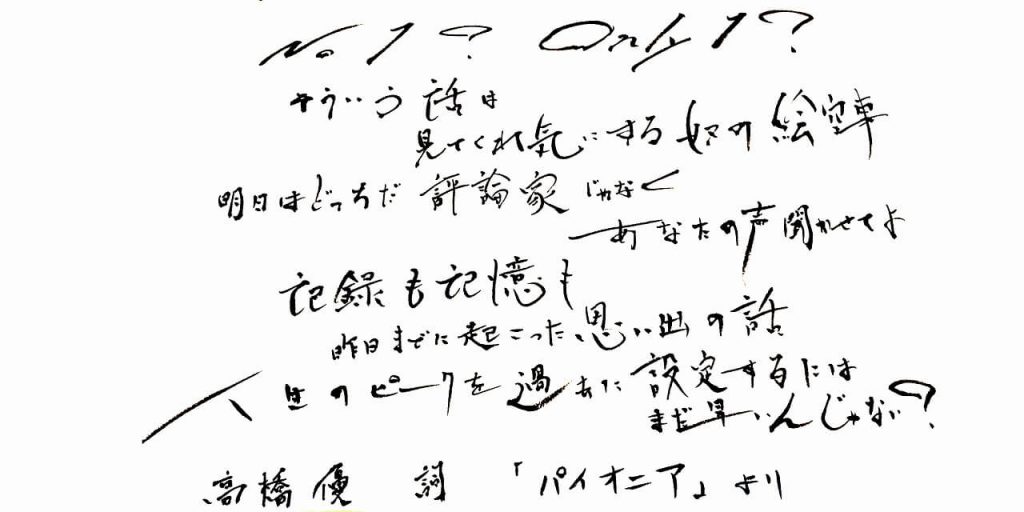 No.1? Only1?
そういう話は
見てくれ気にする奴の絵空事
明日はどっちだ 評論家じゃなく
あなたの声聞かせてよ
記録も記憶も
昨日までに起こった思い出の話
人生のピークを過去に設定するには
まだ早いんじゃない?
高橋優 詞 「パイオニア」より